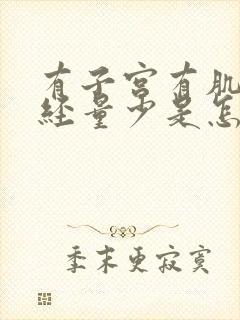 有子宫有肌
经量少是怎
季末更寂寞